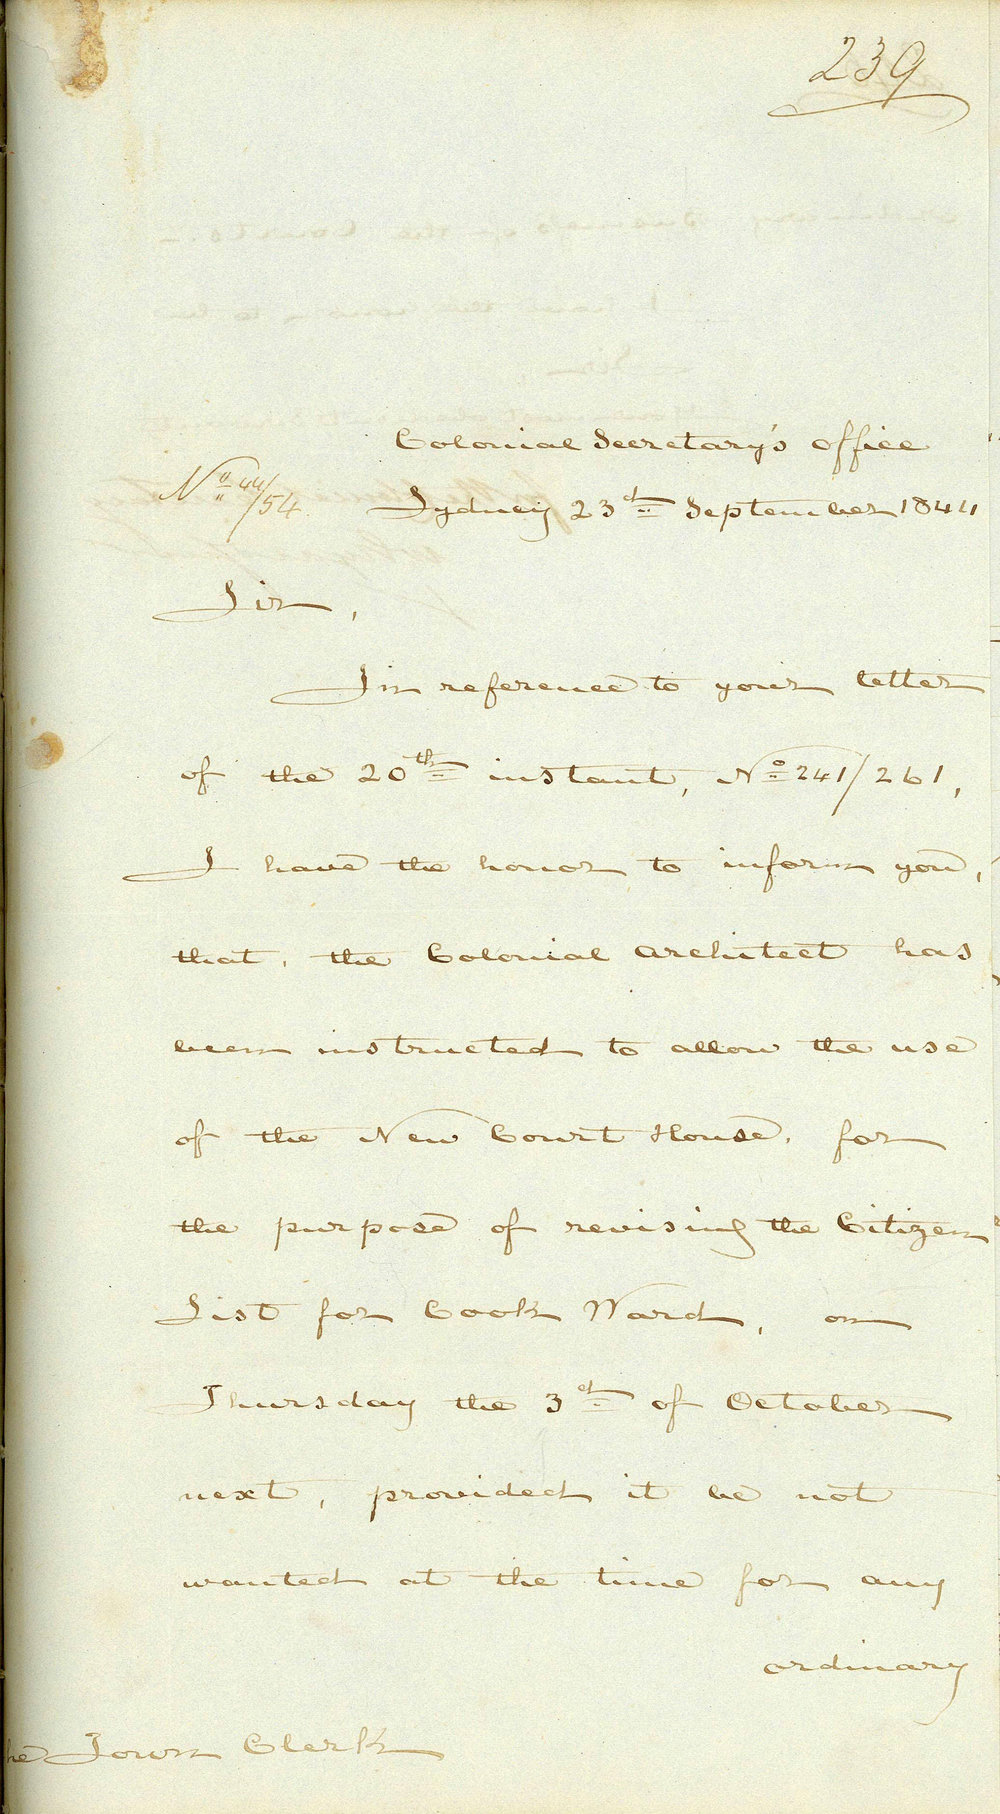 239
Colonial Secretary's Office
No. 44/54. Sydney 23d September 1844
Sir,
In reference to your letter
of the 20th instant, No. 241/261,
I have the honor to inform you,
that, the Colonial Architect has
been instructed to allow the use
of the New Court House, for
the purpose of revising the Citizen
List for Cook Ward, on
Thursday the 3d of October
next, provided it be not
wanted at the time for any
ordinary
he Town Clerk